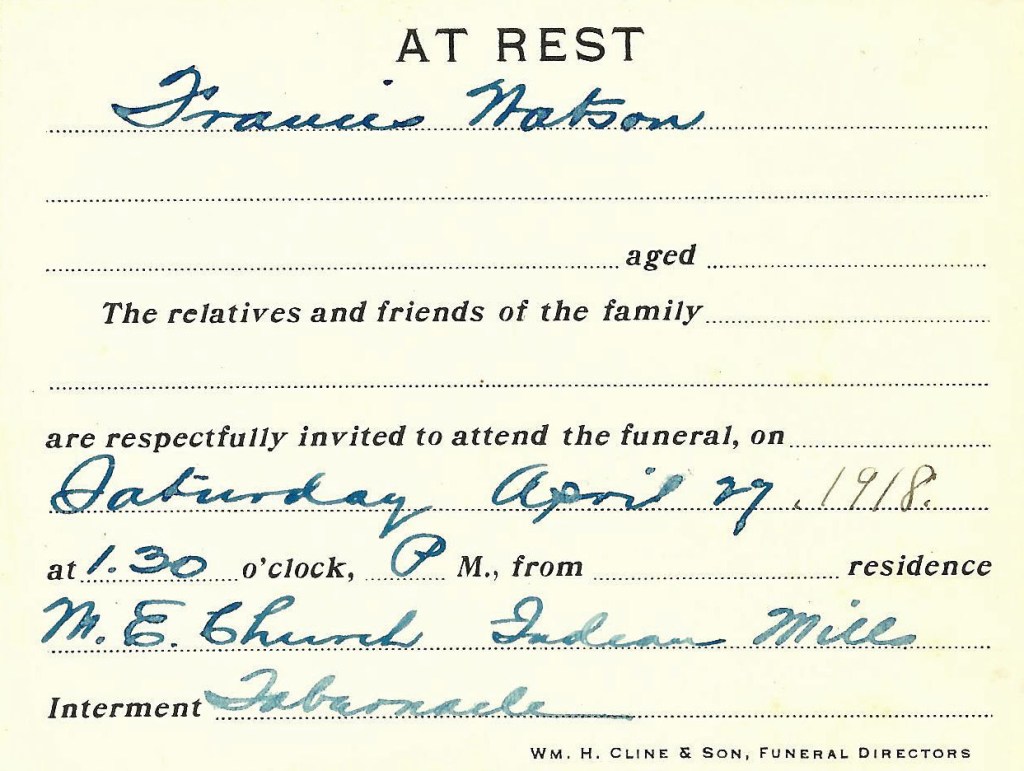 AT REST
Francis Watson
aged
The relatives and friends of the family
are respectfully invited to attend the funeral, on
Saturday April 27, 1918.
at 1.30 o'clock, P M., from residence
M. E. Church Indian Mills
Interment Tabernacle
WM. H. CLINE & SON, FUNERAL DIRECTORS